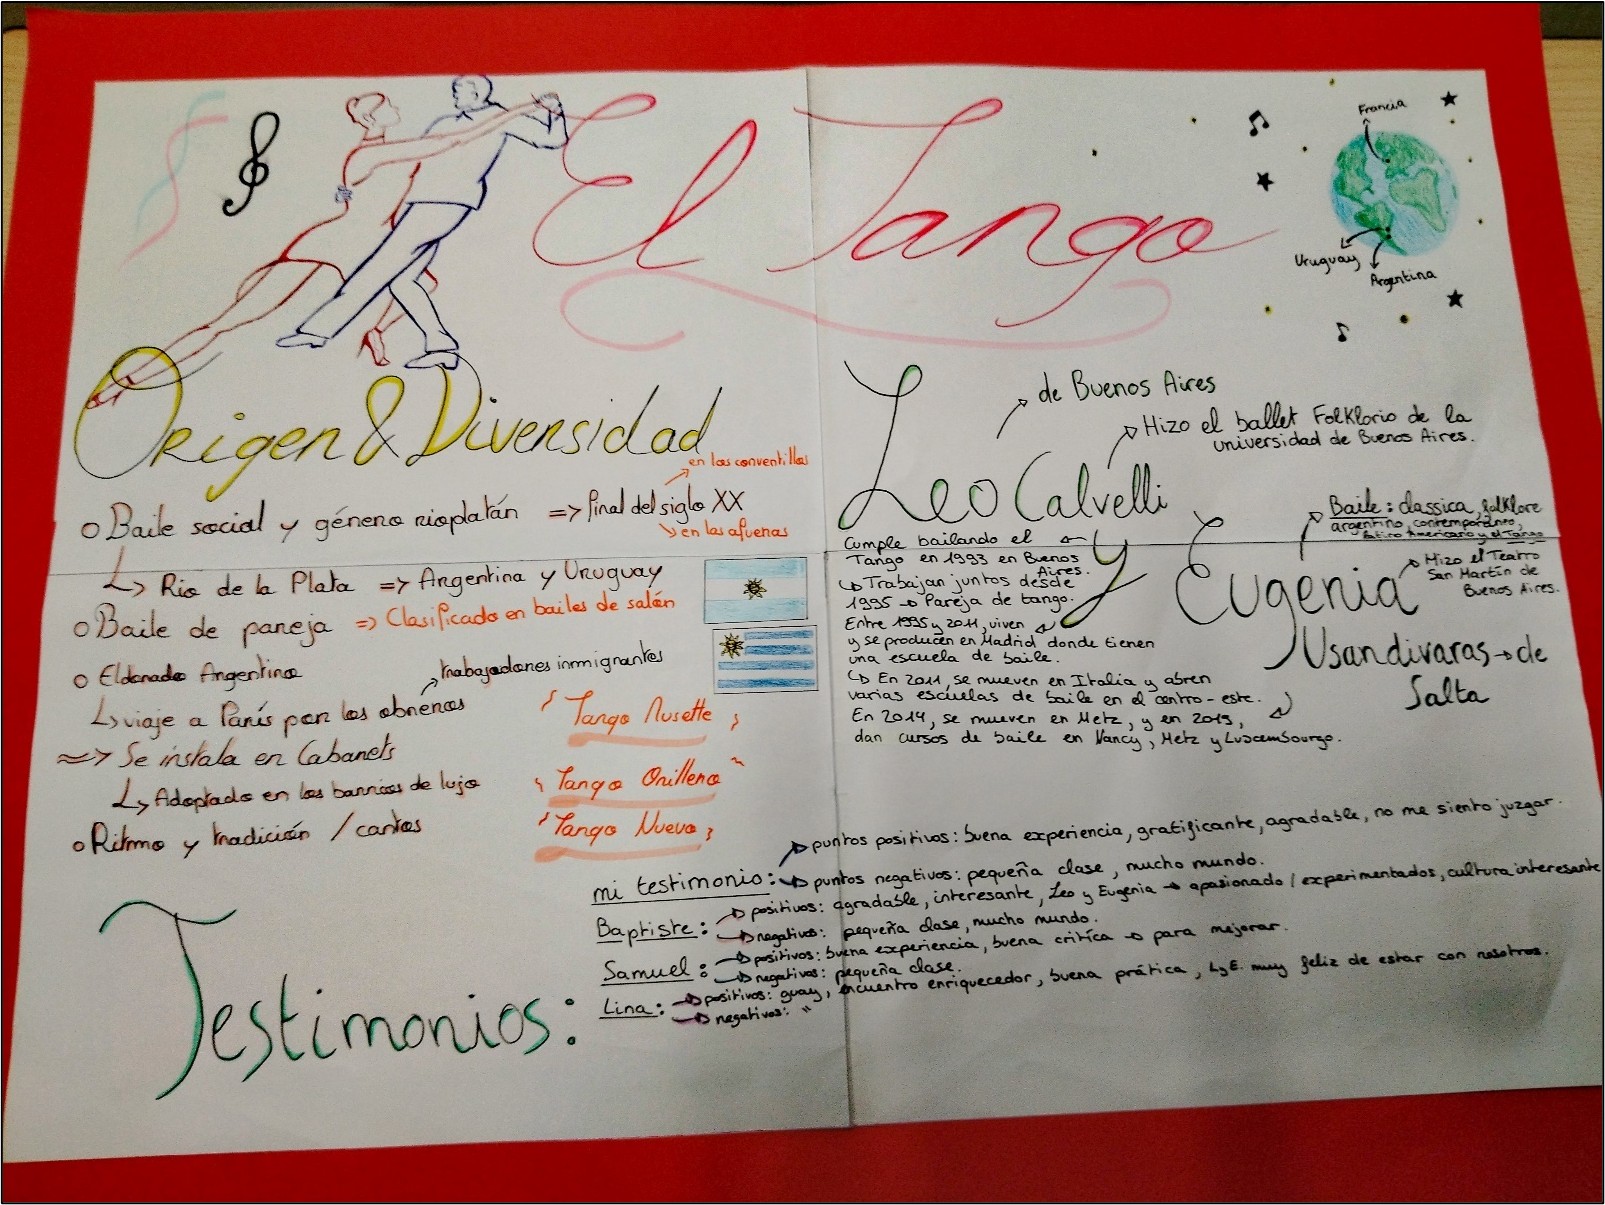 El Tango
Francia
Uruguay
Argentina
Origen & Diversidad
en los conventillos
o Baile social y género rioplatán => final del siglo XX
en las afueras
Rio de la Plata => Argentina y Uruguay
o Baile de pareja => Clasificado en bailes de salón
o Eldorado Argentino
trabajadores inmigrantes
viaje a París por los obreros
=> Se instala en Cabarets
Adoptado en los barrios de lujo
o Ritmo y tradición / cantos
Tango Musette
Tango Orillero
Tango Nuevo
de Buenos Aires
Hizo el ballet Folklorio de la
universidad de Buenos Aires.
Leo Calvelli
y Eugenia
Usandivaras → de
Salta
Baile : classica, folklore
argentino, contemporáneo,
latino Americario y el Tango
Hizo el Teatro
San Martín de
Buenos Aires.
Cumple bailando el
Tango en 1993 en Buenos
Aires.
Trabajan juntos desde
1995 → Pareja de tango.
Entre 1995 y 2011, viven
y se producen en Madrid donde tienen
una escuela de baile.
En 2011, se mueven en Italia y abren
varias escuelas de baile en el centro-este.
En 2014, se mueven en Metz, y en 2015,
dan cursos de baile en Nancy, Metz y Luxembourgo.
Testimonios:
mi testimonio: puntos positivos: buena experiencia, gratificante, agradable, no me siento juzgar.
puntos negativos: pequeña clase, mucho mundo.
Baptiste: positivos: agradable, interesante, Leo y Eugenia → apasionado / experimentados, cultura interesante
negativos: pequeña clase, mucho mundo.
Samuel: positivos: buena experiencia, buena crítica → para mejorar.
negativos: pequeña clase.
Lina: positivos: guay, encuentro enriquecedor, buena prática, L y E. muy feliz de estar con nosotros.
negativos: "